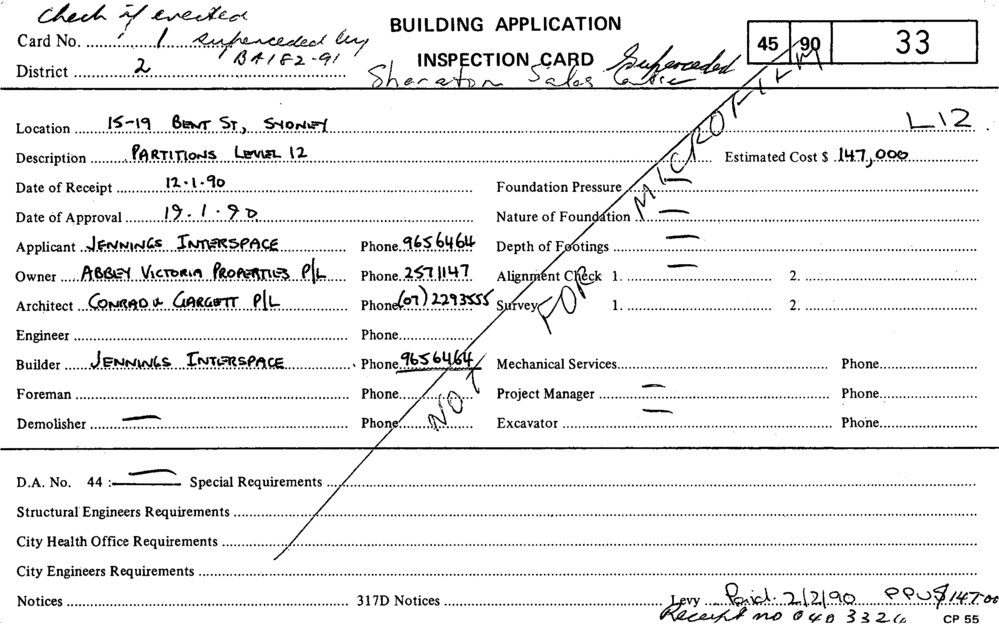 Check if erected
BUILDING APPLICATION
Card No. 1 superceded by 45 90 33
BA182-91
INSPECTION CARD Superceded
District 2 Sheraton Sales Centre
Location 15-19 BENT ST, SYDNEY L12
Description PARTITIONS LEVEL 12 Estimated Cost $ 147,000
Date of Receipt 12.1.90 Foundation Pressure —
Date of Approval 19.1.90 Nature of Foundation —
Applicant JENNINGS INTERSPACE Phone 9656464 Depth of Footings —
Owner ABBEY VICTORIA PROPERTIES P/L Phone 2571147 Alignment Check 1. — 2.
Architect CONRAD & GARGETT P/L Phone (07) 2293555 Survey 1. 2.
Engineer Phone
Builder JENNINGS INTERSPACE Phone 9656464 Mechanical Services Phone
Foreman Phone Project Manager — Phone
Demolisher — Phone Excavator — Phone
NOT FOR MICROFILM
D.A. No. 44 : — Special Requirements
Structural Engineers Requirements
City Health Office Requirements
City Engineers Requirements
Notices 317D Notices Levy Paid. 2/2/90 PPU $147.00
Receipt no CP 55